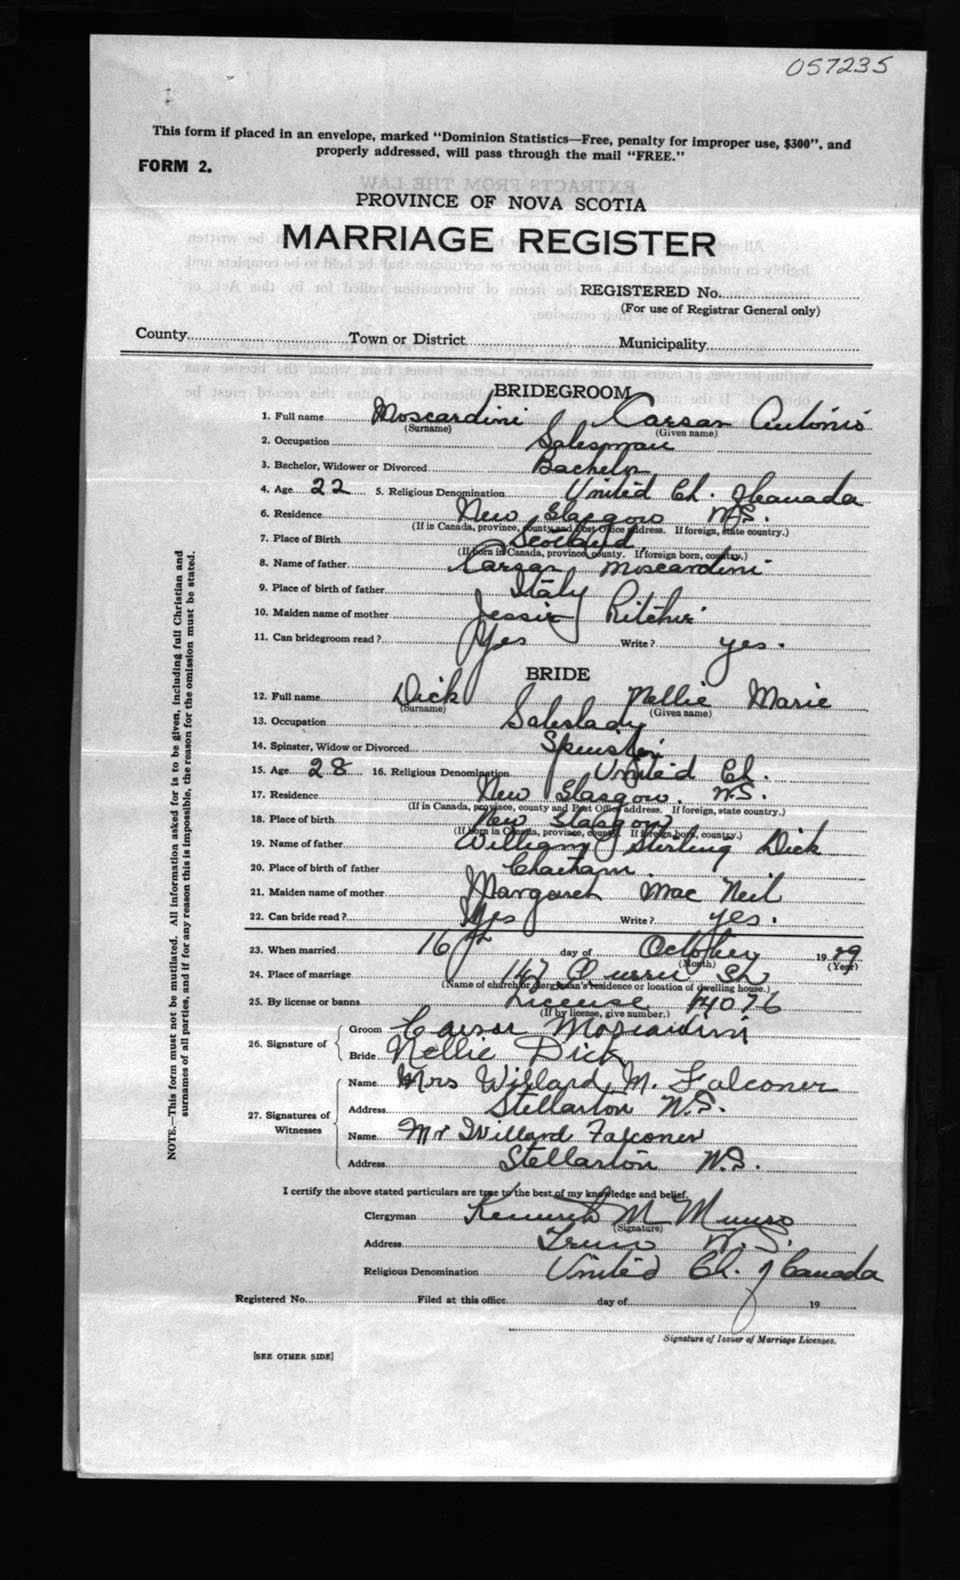 057235
This form if placed in an envelope, marked "Dominion Statistics—Free, penalty for improper use, $300", and
properly addressed, will pass through the mail "FREE."
FORM 2.
PROVINCE OF NOVA SCOTIA
MARRIAGE REGISTER
REGISTERED No.
(For use of Registrar General only)
County Town or District Municipality
BRIDEGROOM
1. Full name Moscardini Caesar Antonio
(Surname) (Given name)
2. Occupation Salesman
3. Bachelor, Widower or Divorced Bachelor
4. Age 22 5. Religious Denomination United Ch. of Canada
6. Residence New Glasgow N.S.
(If in Canada, province, county and Post Office address. If foreign, state country.)
7. Place of Birth Scotland
(If born in Canada, province, county. If foreign born, country.)
8. Name of father Caesar Moscardini
9. Place of birth of father Italy
10. Maiden name of mother Jessie Ritchie
11. Can bridegroom read? Yes Write? yes.
BRIDE
12. Full name Dick Nellie Marie
(Surname) (Given name)
13. Occupation Saleslady
14. Spinster, Widow or Divorced Spinster
15. Age 28 16. Religious Denomination United Ch.
17. Residence New Glasgow. N.S.
(If in Canada, province, county and Post Office address. If foreign, state country.)
18. Place of birth New Glasgow
(If born in Canada, province, county. If foreign born, country.)
19. Name of father William Stirling Dick
20. Place of birth of father Chatham.
21. Maiden name of mother Margaret Mac Neil
22. Can bride read? Yes Write? yes.
23. When married 16th day of October 1929
(Month) (Year)
24. Place of marriage 147 Queen St
(Name of church or clergyman's residence or location of dwelling house.)
25. By license or banns License 14076
(If by license, give number.)
26. Signature of Groom Caesar Moscardini
Bride Nellie Dick
27. Signatures of Witnesses Name Mrs Willard M. Falconer
Address Stellarton N.S.
Name Mr Willard Falconer
Address Stellarton N.S.
I certify the above stated particulars are true to the best of my knowledge and belief.
Clergyman Kenneth M Munro
(Signature)
Address Truro N.S.
Religious Denomination United Ch. of Canada
Registered No. Filed at this office day of 19
Signature of Issuer of Marriage Licenses.
[SEE OTHER SIDE]
NOTE.—This form must not be mutilated. All information asked for is to be given, including full Christian and
surnames of all parties, and if for any reason this is impossible, the reason for the omission must be stated.